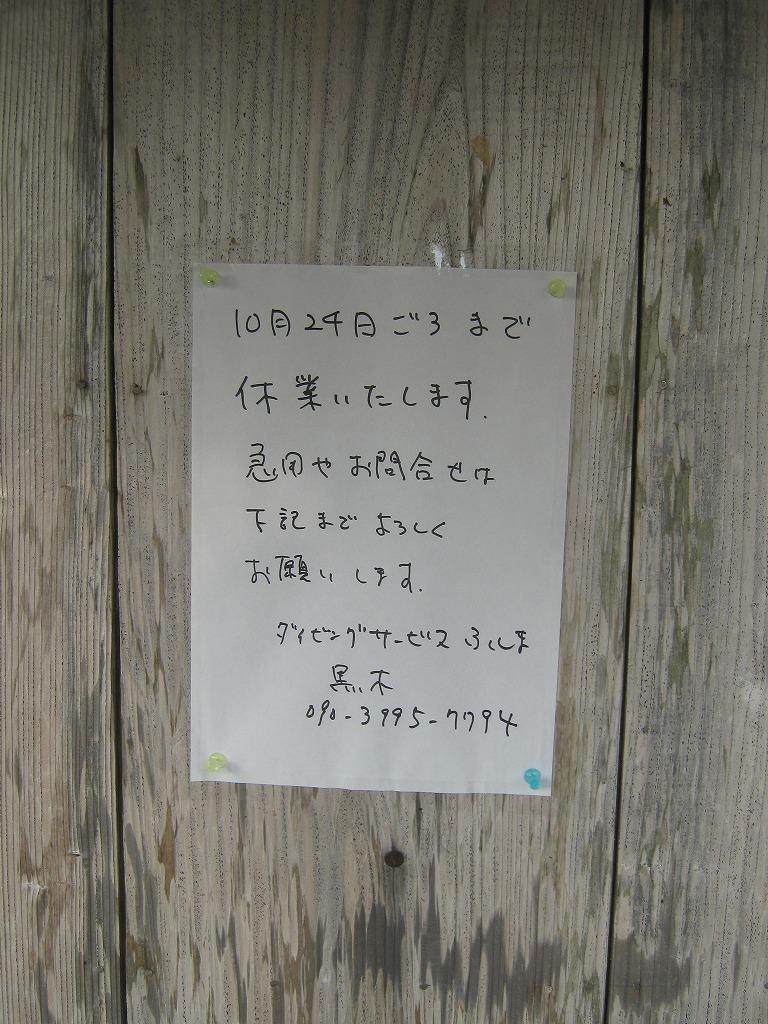 10月24日ごろまで
休業いたします.
急用やお問合せは
下記までよろしく
お願いします.
ダイビングサービス ふしま
黒木
090-3995-7794